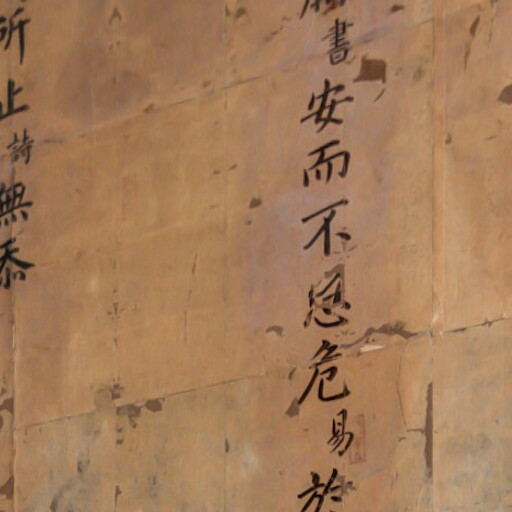 書安而不危易於
所止詩無忝